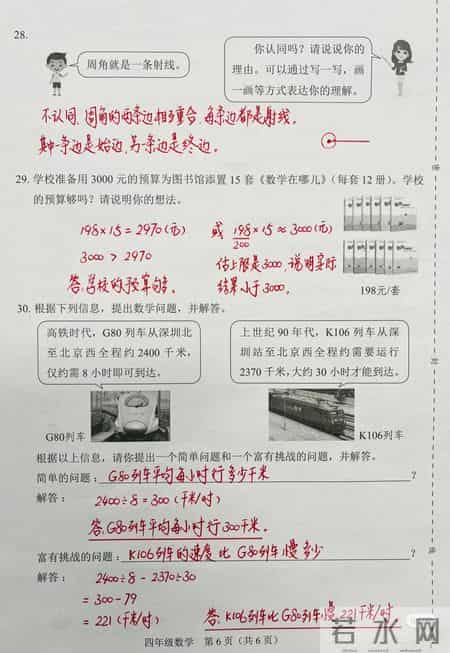 28.
周角就是一条射线。
你认同吗？请说说你的
理由。可以通过写一写，画
一画等方式表达你的理解。
不认同。周角的两条边相重合，每条边都是射线。
其中一条边是始边，另一条边是终边。
29. 学校准备用 3000 元的预算为图书馆添置 15 套《数学在哪儿》（每套 12 册）。学校
的预算够吗？请说明你的想法。
198×15=2970(元)
3000 > 2970
答：学校的预算句多。
或 198×15≈3000(元)
200
估上限是3000，说明实际
结果小于3000。
198元/套
30. 根据下列信息，提出数学问题，并解答。
高铁时代，G80 列车从深圳北
至北京西全程约 2400 千米，
仅约需 8 小时即可到达。
上世纪 90 年代，K106 列车从深
圳站至北京西全程约需要运行
2370 千米，大约 30 小时才能到达。
G80列车
K106列车
根据以上信息，请你提出一个简单问题和一个富有挑战的问题，并解答。
简单的问题：G80列车平均每小时行多少千米？
解答：
2400÷8=300（千米/时）
答：G80列车平均每小时行300千米。
富有挑战的问题：K106列车的速度比G80列车慢多少？
解答：
2400÷8-2370÷30
=300-79
=221（千米/时）
答：K106列车比G80列车慢221千米/时
四年级数学 第 6 页（共 6 页）
若水网